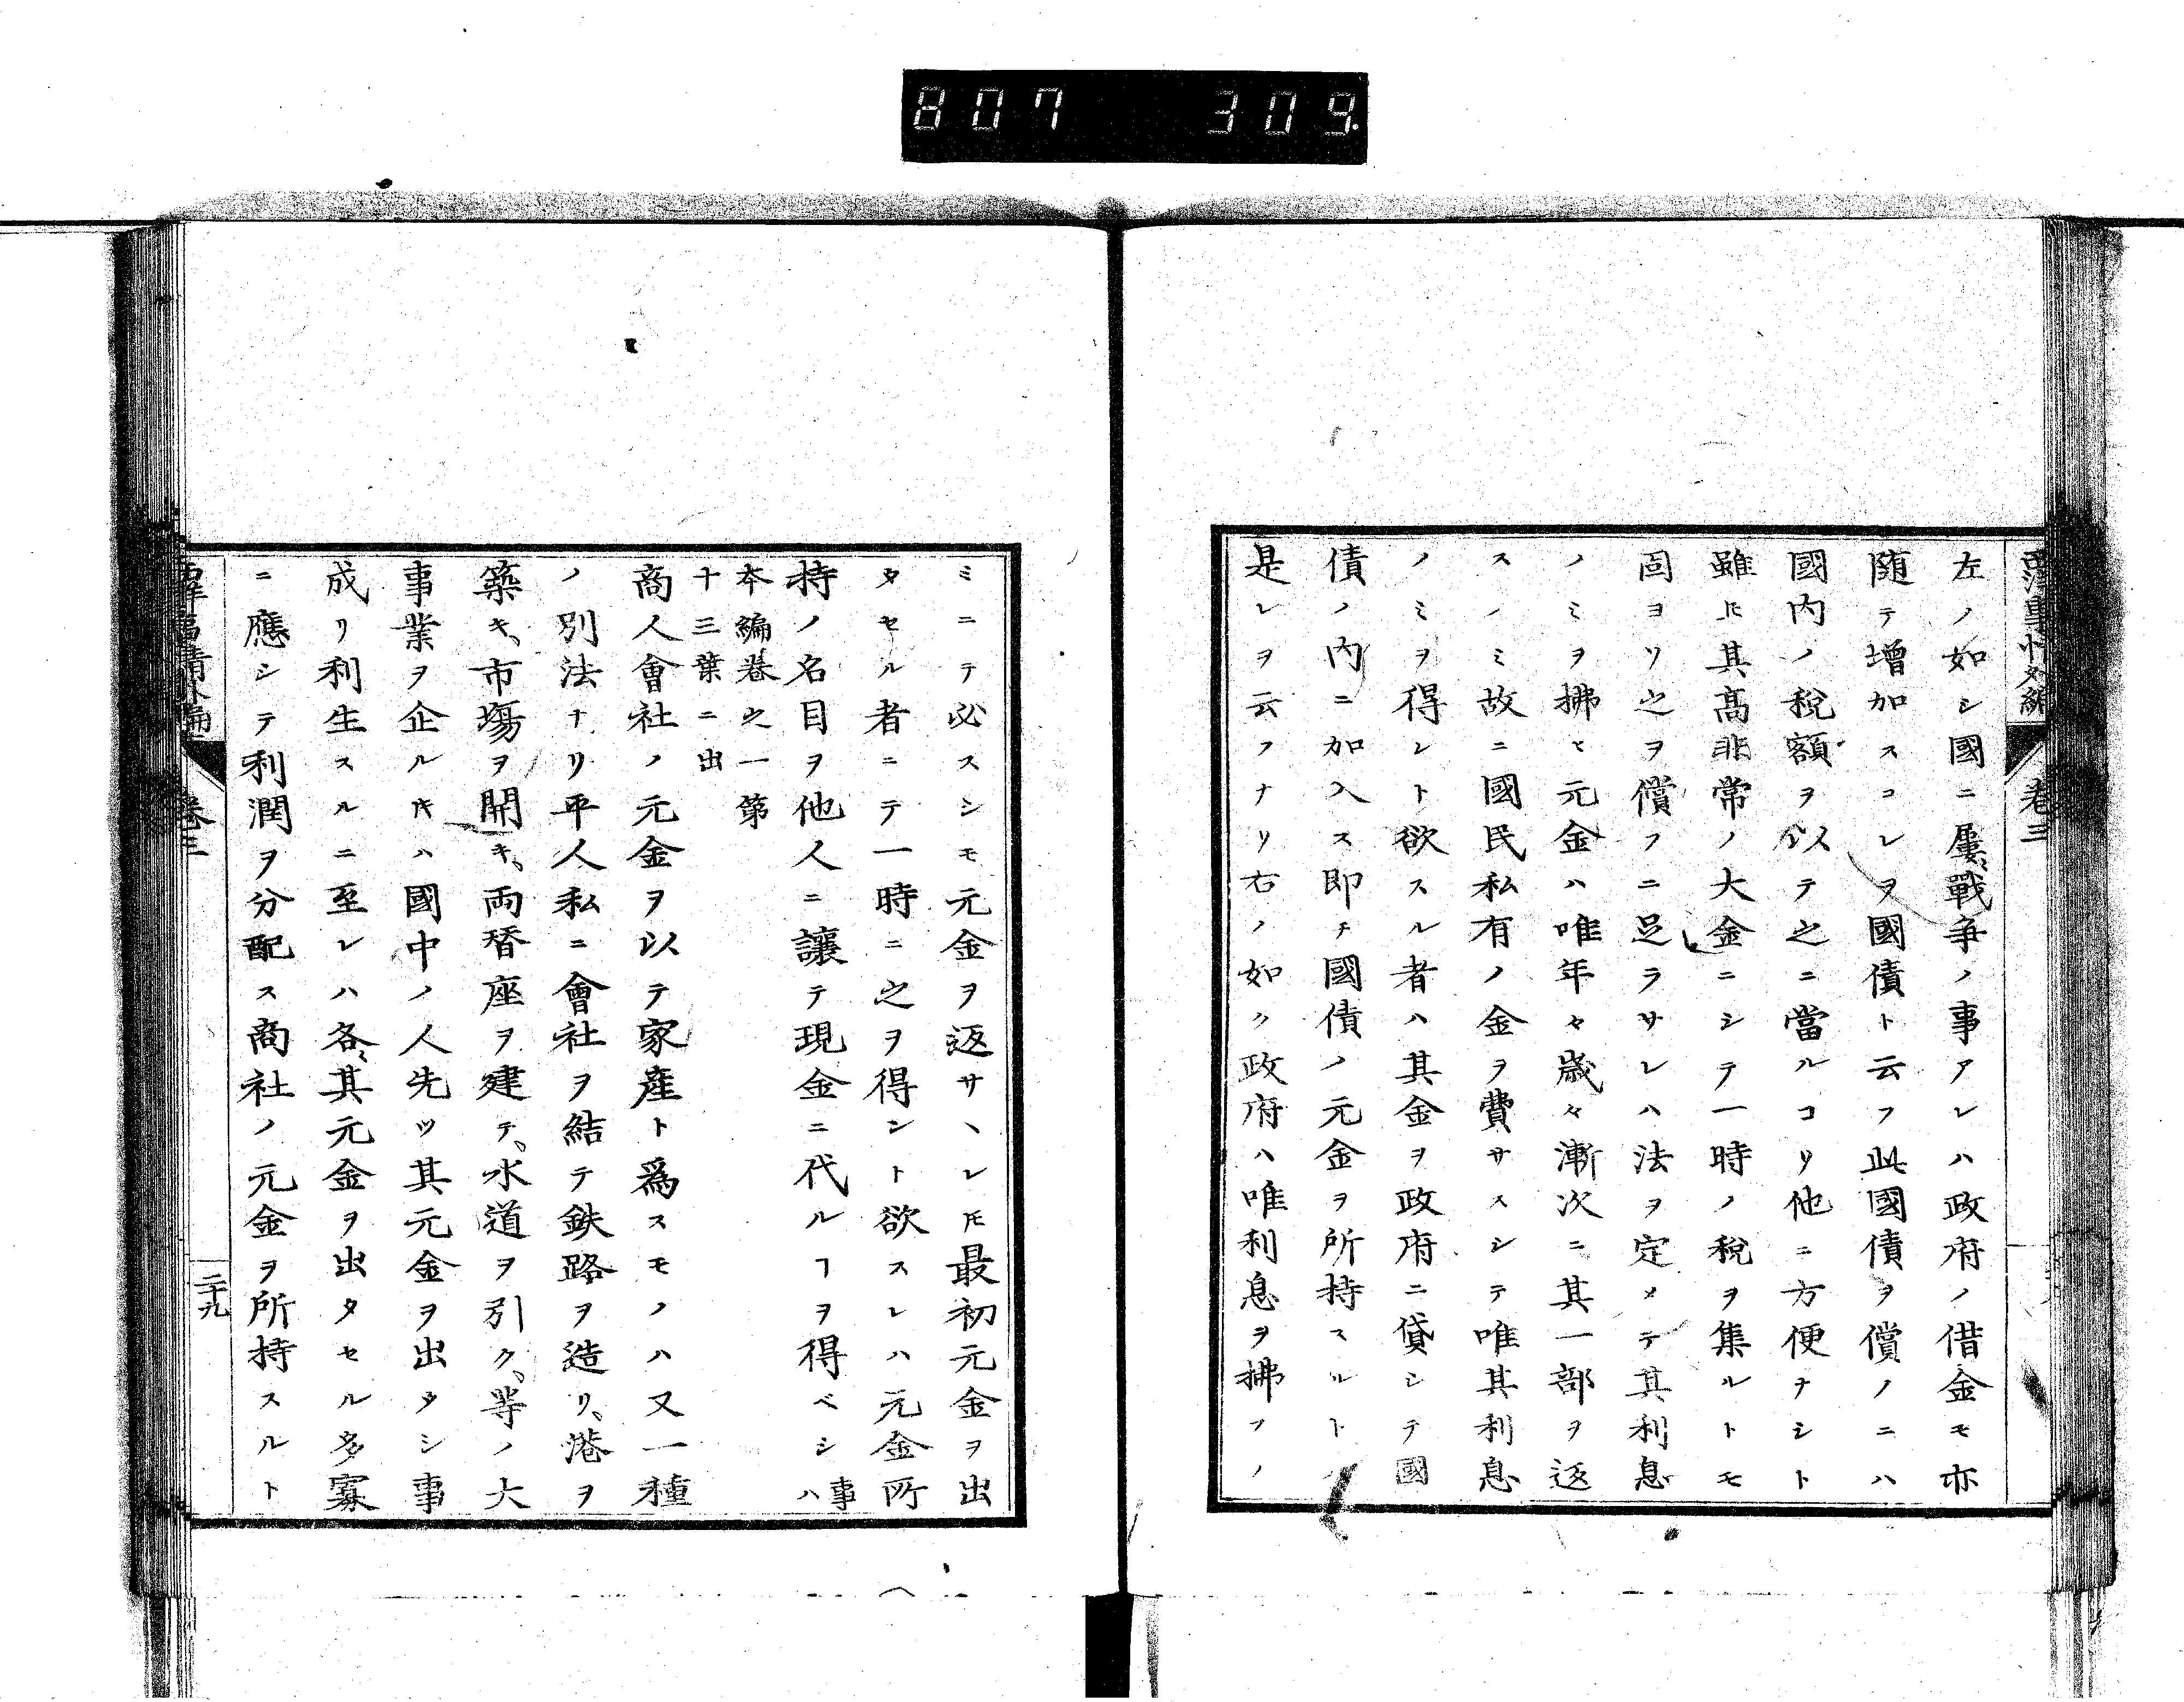 807 309
西洋事情外編 卷三
左ノ如シ國ニ屢〻戰爭ノ事アレハ政府ノ借金モ亦
隨テ增加スコレヲ國債ト云フ此國債ヲ償ノニハ
國内ノ稅額ヲ以テ之ニ當ルコリ他ニ方便ナシト
雖𪜈其高非常ノ大金ニシテ一時ノ稅ヲ集ルトモ
固ヨリ之ヲ償フニ足ラサレハ法ヲ定メテ其利息
ノミヲ拂ヒ元金ハ唯年々歲々漸次ニ其一部ヲ返
スノミ故ニ國民私有ノ金ヲ費サスシテ唯其利息
ノミヲ得レト欲スル者ハ其金ヲ政府ニ貸シテ國
債ノ内ニ加入ス即チ國債ノ元金ヲ所持スルト
是レヲ云フナリ右ノ如ク政府ハ唯利息ヲ拂フノ
ミニテ必スシモ元金ヲ返サヽレ𪜈最初元金ヲ出
タセル者ニテ一時ニ之ヲ得ント欲スレハ元金所
持ノ名目ヲ他人ニ讓テ現金ニ代ルヿヲ得ベシ事ハ
本編卷之一第
十三葉ニ出
商人會社ノ元金ヲ以テ家産ト爲スモノハ又一種
ノ別法ナリ平人私ニ會社ヲ結テ鉄路ヲ造リ、港ヲ
築キ、市塲ヲ開キ、両替座ヲ建テ、水道ヲ引ク、等ノ大
事業ヲ企ル𪜈ハ國中ノ人先ツ其元金ヲ出タシ事
成リ利生スルニ至レハ各〻其元金ヲ出タセル多寡
ニ應シテ利潤ヲ分配ス商社ノ元金ヲ所持スルト
西洋事情外編 卷三
二十九